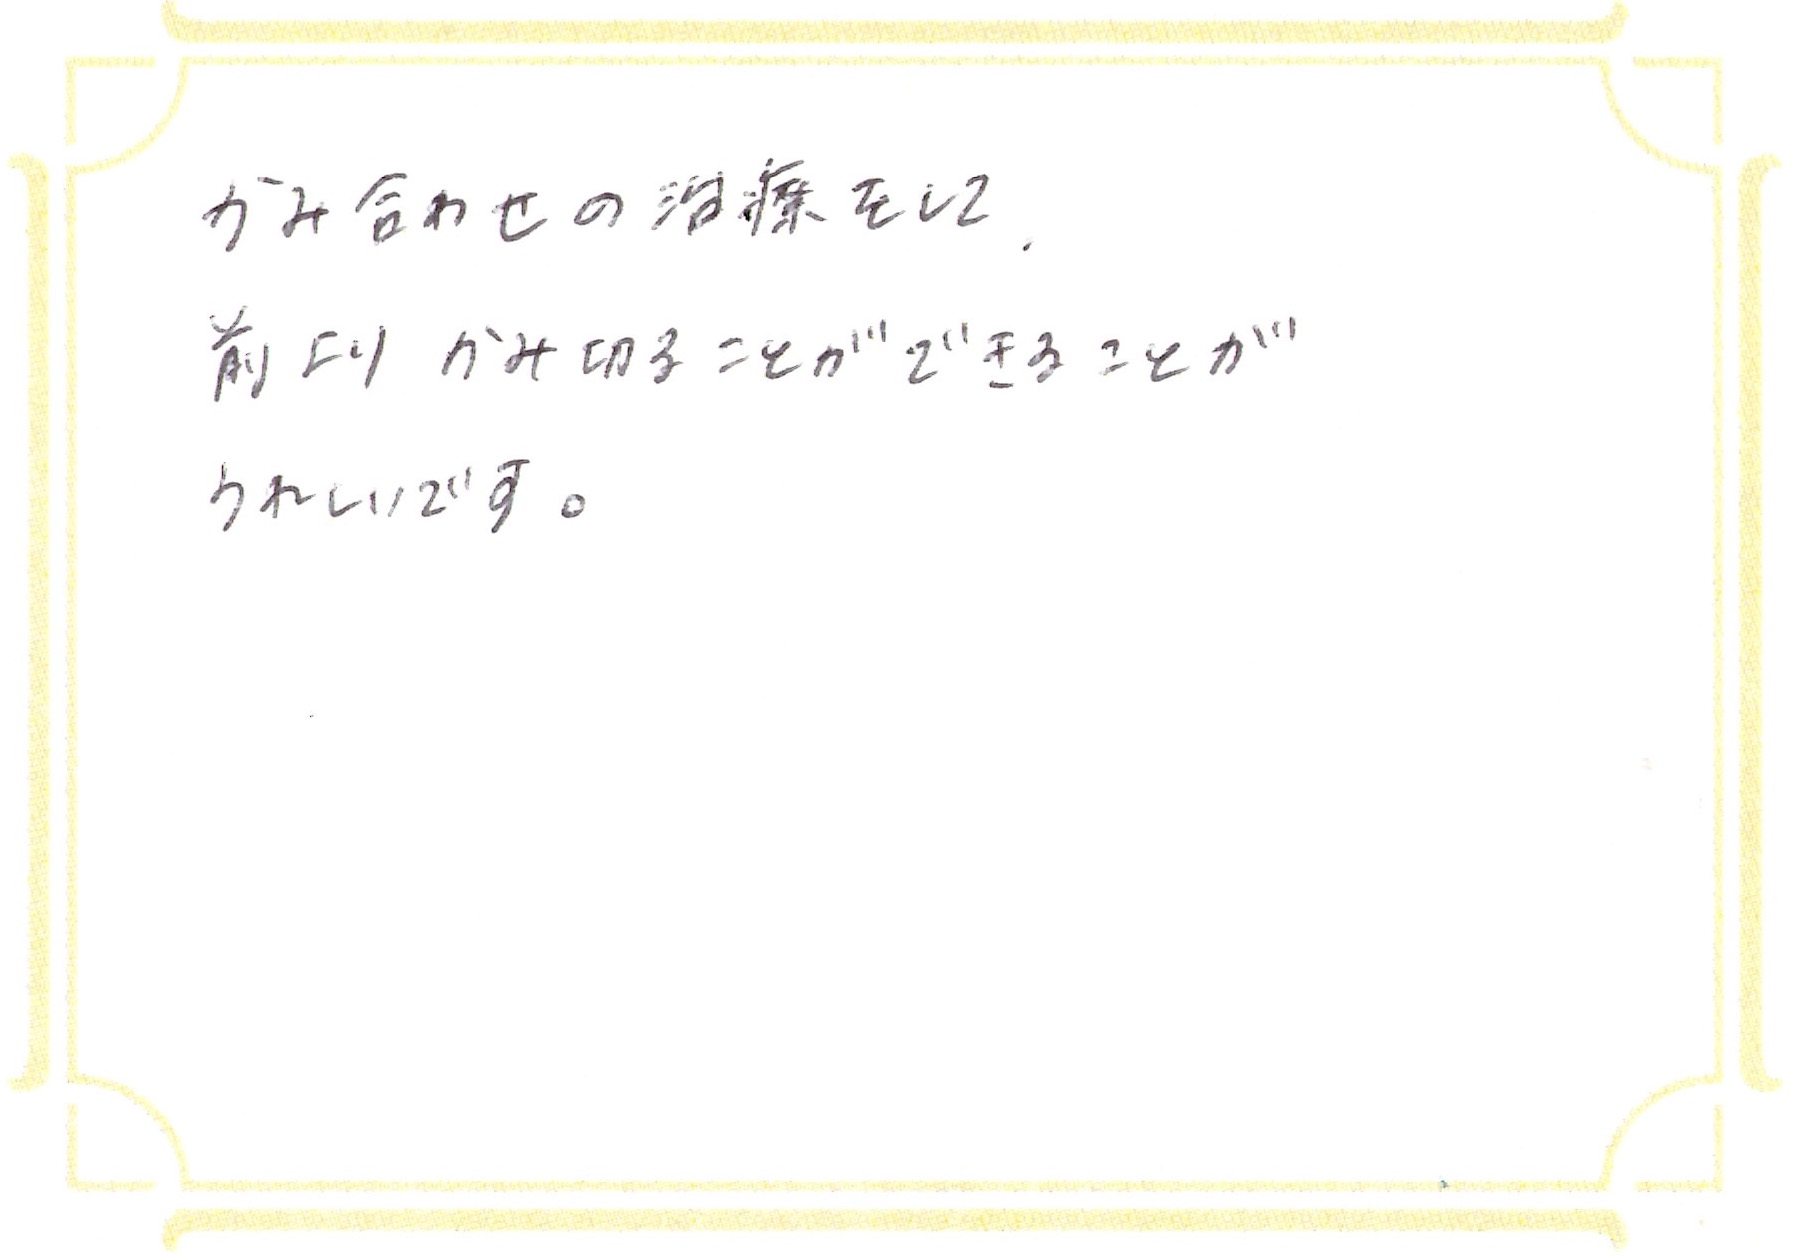 かみ合わせの治療をして、
前より かみ切ることができることが
うれしいです。